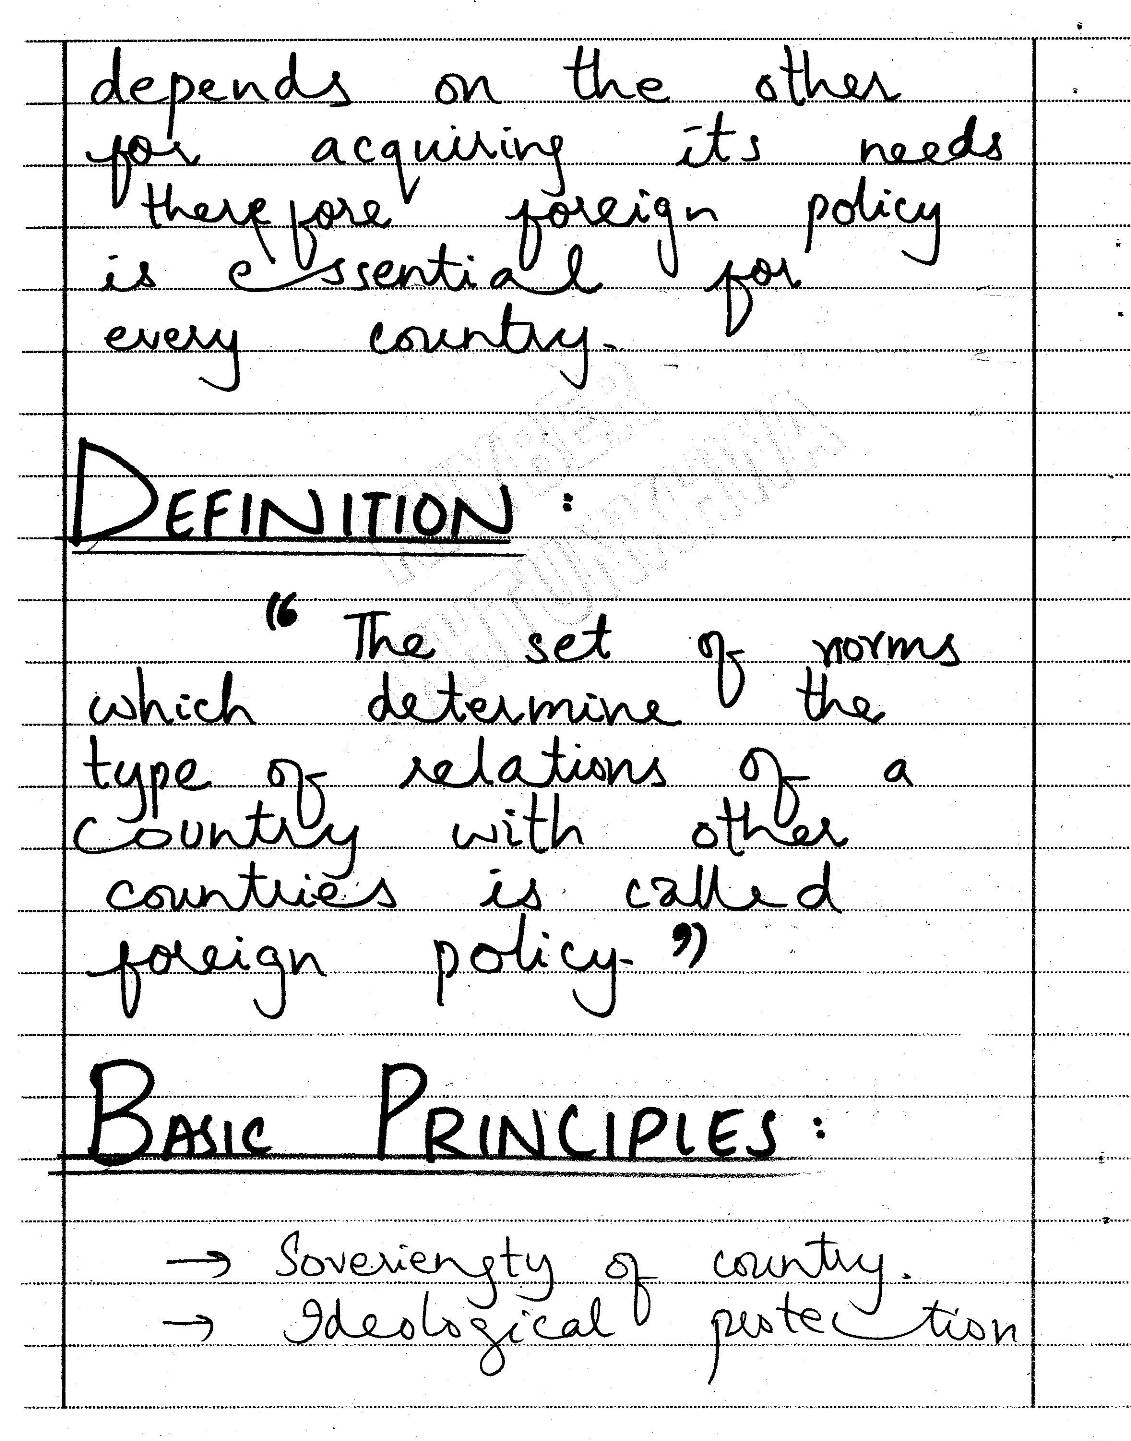 depends on the other
for acquiring its needs
therefore foreign policy
is essential for
every country.
DEFINITION :
“ The set of norms
which determine the
type of relations of a
country with other
countries is called
foreign policy. ”
BASIC PRINCIPLES :
→ Soveriengty of country.
→ Ideological protection